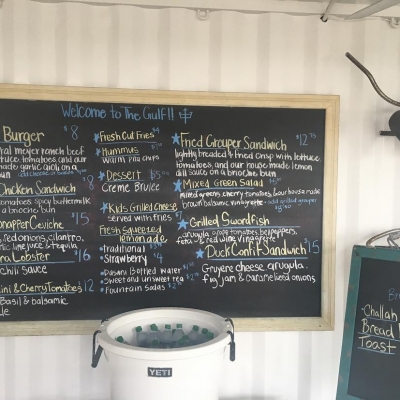 Welcome to The Gulf!!
Burger $8
ral meyer ranch beef
tuce, tomatoes and our
made garlic aioli on a
bun
Chicken Sandwich $8
tomatoes, spicy buttermilk
a brioche bun
Snapper Ceviche $15
red onions, cilantro,
lime juice & tequila
Lobster $16
Chili Sauce
ini & Cherry Tomatoes $12
Basil & balsamic
Fresh Cut Fries $4
Hummus
warm pita chips
Dessert $5.00
Creme Brulee
Kids Grilled Cheese
served with fries $7
Fresh Squeezed
lemonade
Traditional
Strawberry $4
Dasani Bottled Water
Sweet and unsweet tea
Fountain Sodas
Fried Grouper Sandwich $12.75
lightly breaded & fried crisp with lettuce
tomatoes, and our house made lemon
dill sauce on a brioche bun
Mixed Green Salad
mixed greens, cherry tomatoes, & our house made
brown balsamic vinaigrette
Grilled Swordfish
arugula, grape tomatoes, bell peppers,
feta & red wine vinaigrette
Duck Confit Sandwich $15
Gruyere cheese, arugula,
fig jam & caramelized onions
Challah
Bread
Toast
YETI